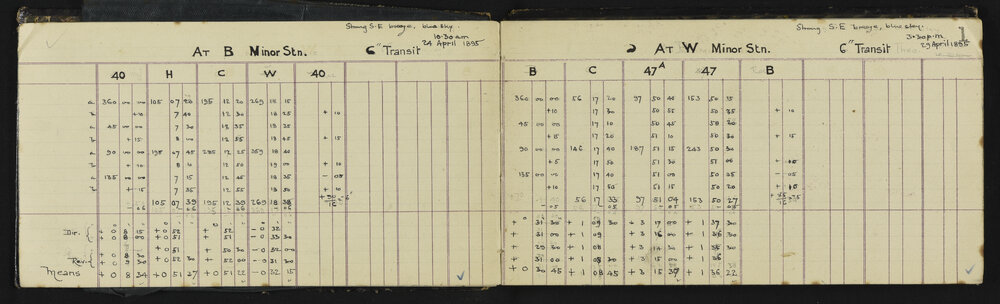 Strong S.E breeze, blue sky.
10.30 a.m
24 April 1895
AT B MINOR STN.
6" Transit
40 H C W 40
a 360 00 00 105 07 20 195 12 20 269 18 15
+10 7 40 12 30 18 25 + 10
45 00 00 7 30 12 35 18 35
+15 8 00 12 55 18 45 + 15
90 00 00 195 07 45 285 12 25 359 18 40
+ 10 12 50 19 00 + 10
135 00 00 7 15 12 45 18 30 - 05
+ 15 7 35 12 55 18 50 + 10
105 07 39 195 12 39 269 18 38
Dir. + 0 8 15 + 0 52 + 52 - 0 32
+ 0 51 + 50 30 - 0 32
Rev. + 0 52 30 + 52 00 - 0 31
Means + 0 8 34 + 0 51 27 + 0 51 22 - 0 32 15
Strong S.E breeze, blue sky.
1
3.30 p.m
29 April 1895
AT W MINOR STN.
6" Transit
B C 47A 47 B
360 00 00 56 17 20 97 50 40 153 50 15
+10 17 30 50 55 50 35 + 10
45 00 00 17 10 50 45 50 20
+15 17 20 51 10 50 30 + 15
90 00 00 146 17 40 187 51 15 243 50 30
+5 17 50 51 30 51 00
135 00 00 17 40 51 05 50 20 - 05
+10 17 50 51 15 50 20
56 17 33 97 51 04 153 50 27
+ 0 31 30 + 1 09 30 + 3 17 00 + 1 37 30
+ 31 00 + 1 09 + 3 16 00 + 1 36 30
+ 29 30 + 1 08 + 3 14 30 + 1 35
+ 31 00 + 1 08 30 + 3 15 30 + 1 36 30
+ 0 30 45 + 1 08 45 + 3 15 37 + 1 36 22